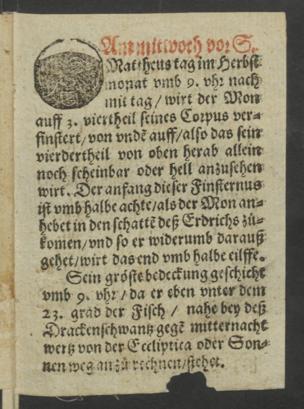 Am mitwoch vor S.
Mattheus tag im Herbst
monat vmb 9. vhr nach
mit tag / wirt der Mon
auff 3. viertheil seines Corpus ver-
finstert / von vndē auff / also das sein
vierdertheil von oben herab allein
noch scheinbar oder hell anzusehen
wirt. Der anfang dieser Finsternus
ist vmb halbe achte / als der Mon an-
hebet in den schattē deß Erdrichs zů-
komen / vnd so er widerumb darauß
gehet / wirt das end vmb halbe eilffe.
Sein gröste bedeckung geschicht
vmb 9. vhr / da er eben vnter dem
23. grad der Fisch / nahe bey deß
Drackenschwantz gegē mitternacht
wertz von der Eccliptica oder Son-
nen weg an zů rechnen / stehet.